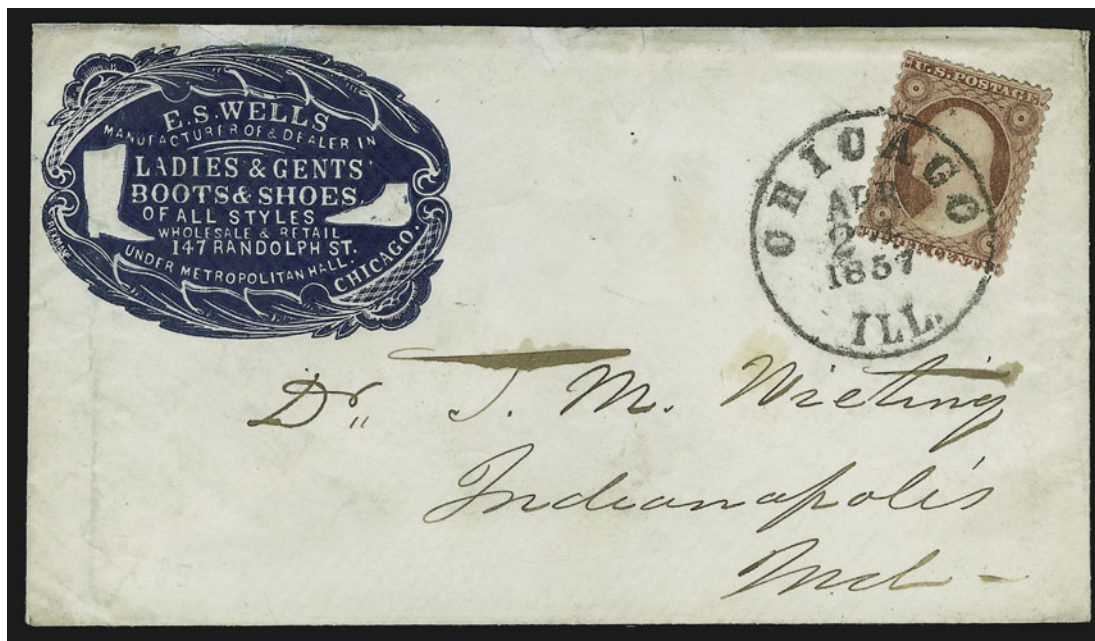 E.S. WELLS
MANUFACTURER OF & DEALER IN
LADIES & GENTS'
BOOTS & SHOES,
OF ALL STYLES
WHOLESALE & RETAIL
147 RANDOLPH ST.
UNDER METROPOLITAN HALL.
CHICAGO.
U.S. POSTAGE
THREE CENTS
CHICAGO
APR
1857
ILL.
Dr., T. M. Wieting
Indianapolis
Ind -